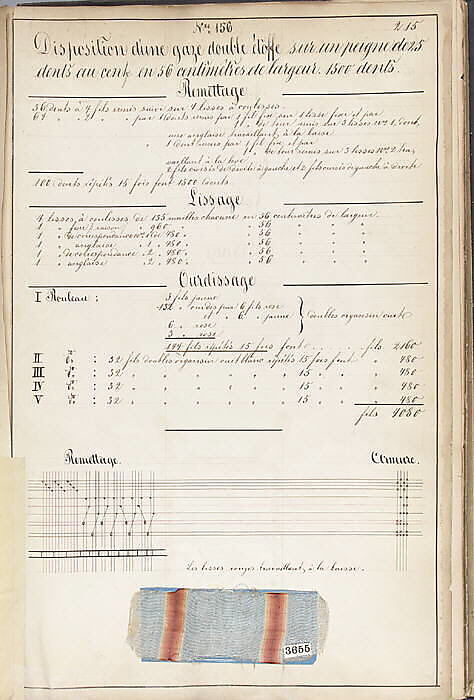 Nos 156
215
Disposition d'une gaze double étoffe sur un peigne de 25
dents au cent. en 56 centimètres de largeur. 1500 dents.
Remettage
36 dents à 4 fils remis suivis sur 4 lisses à coulisses.
64 " par 1 dents remis par 1 fil fixe sur 1 lisse fixe et par
1 de tour remis sur 3 lisses No 1. dont,
une anglaise travaillant, à la baisse
1 dent remis par 1 fil fixe, et par
1 de tour remis sur 3 lisses No 2 tra,
vaillant à la levée
2 fils croisés de droite à gauche et 2 fils croisés de gauche à droite
100 dents répétés 15 fois font 1500 dents.
Lissage
4 lisses, à coulisses de 135 mailles chacune en 56 centimètres de largeur.
1 " fixe 960 " 56 " " "
1 " de correspondance No 1 de 480 " 56 " " "
1 " anglaise " 1 " 480 " 56 " " "
1 " de correspondance " 2 " 480 " 56 " " "
1 " anglaise " 2 " 480 " 56 " " "
Ourdissage
I Rouleau : 3 fils jaune
132 " ourdis par 6 fils rose
et " 6 " jaune
doubles organsin cuite
6 " rose
3 " rose
144 fils répétés 15 fois font . . . . fils 2160
II do : 32 fils doubles organsin cuit blanc répétés 15 fois font " 480
III do : 32 " " " " 15 " " " 480
IV do : 32 " " " " 15 " " " 480
V do : 32 " " " " 15 " " " 480
fils 4080
Remettage.
Armure.
Les lisses rouges travaillent, à la baisse.
3655